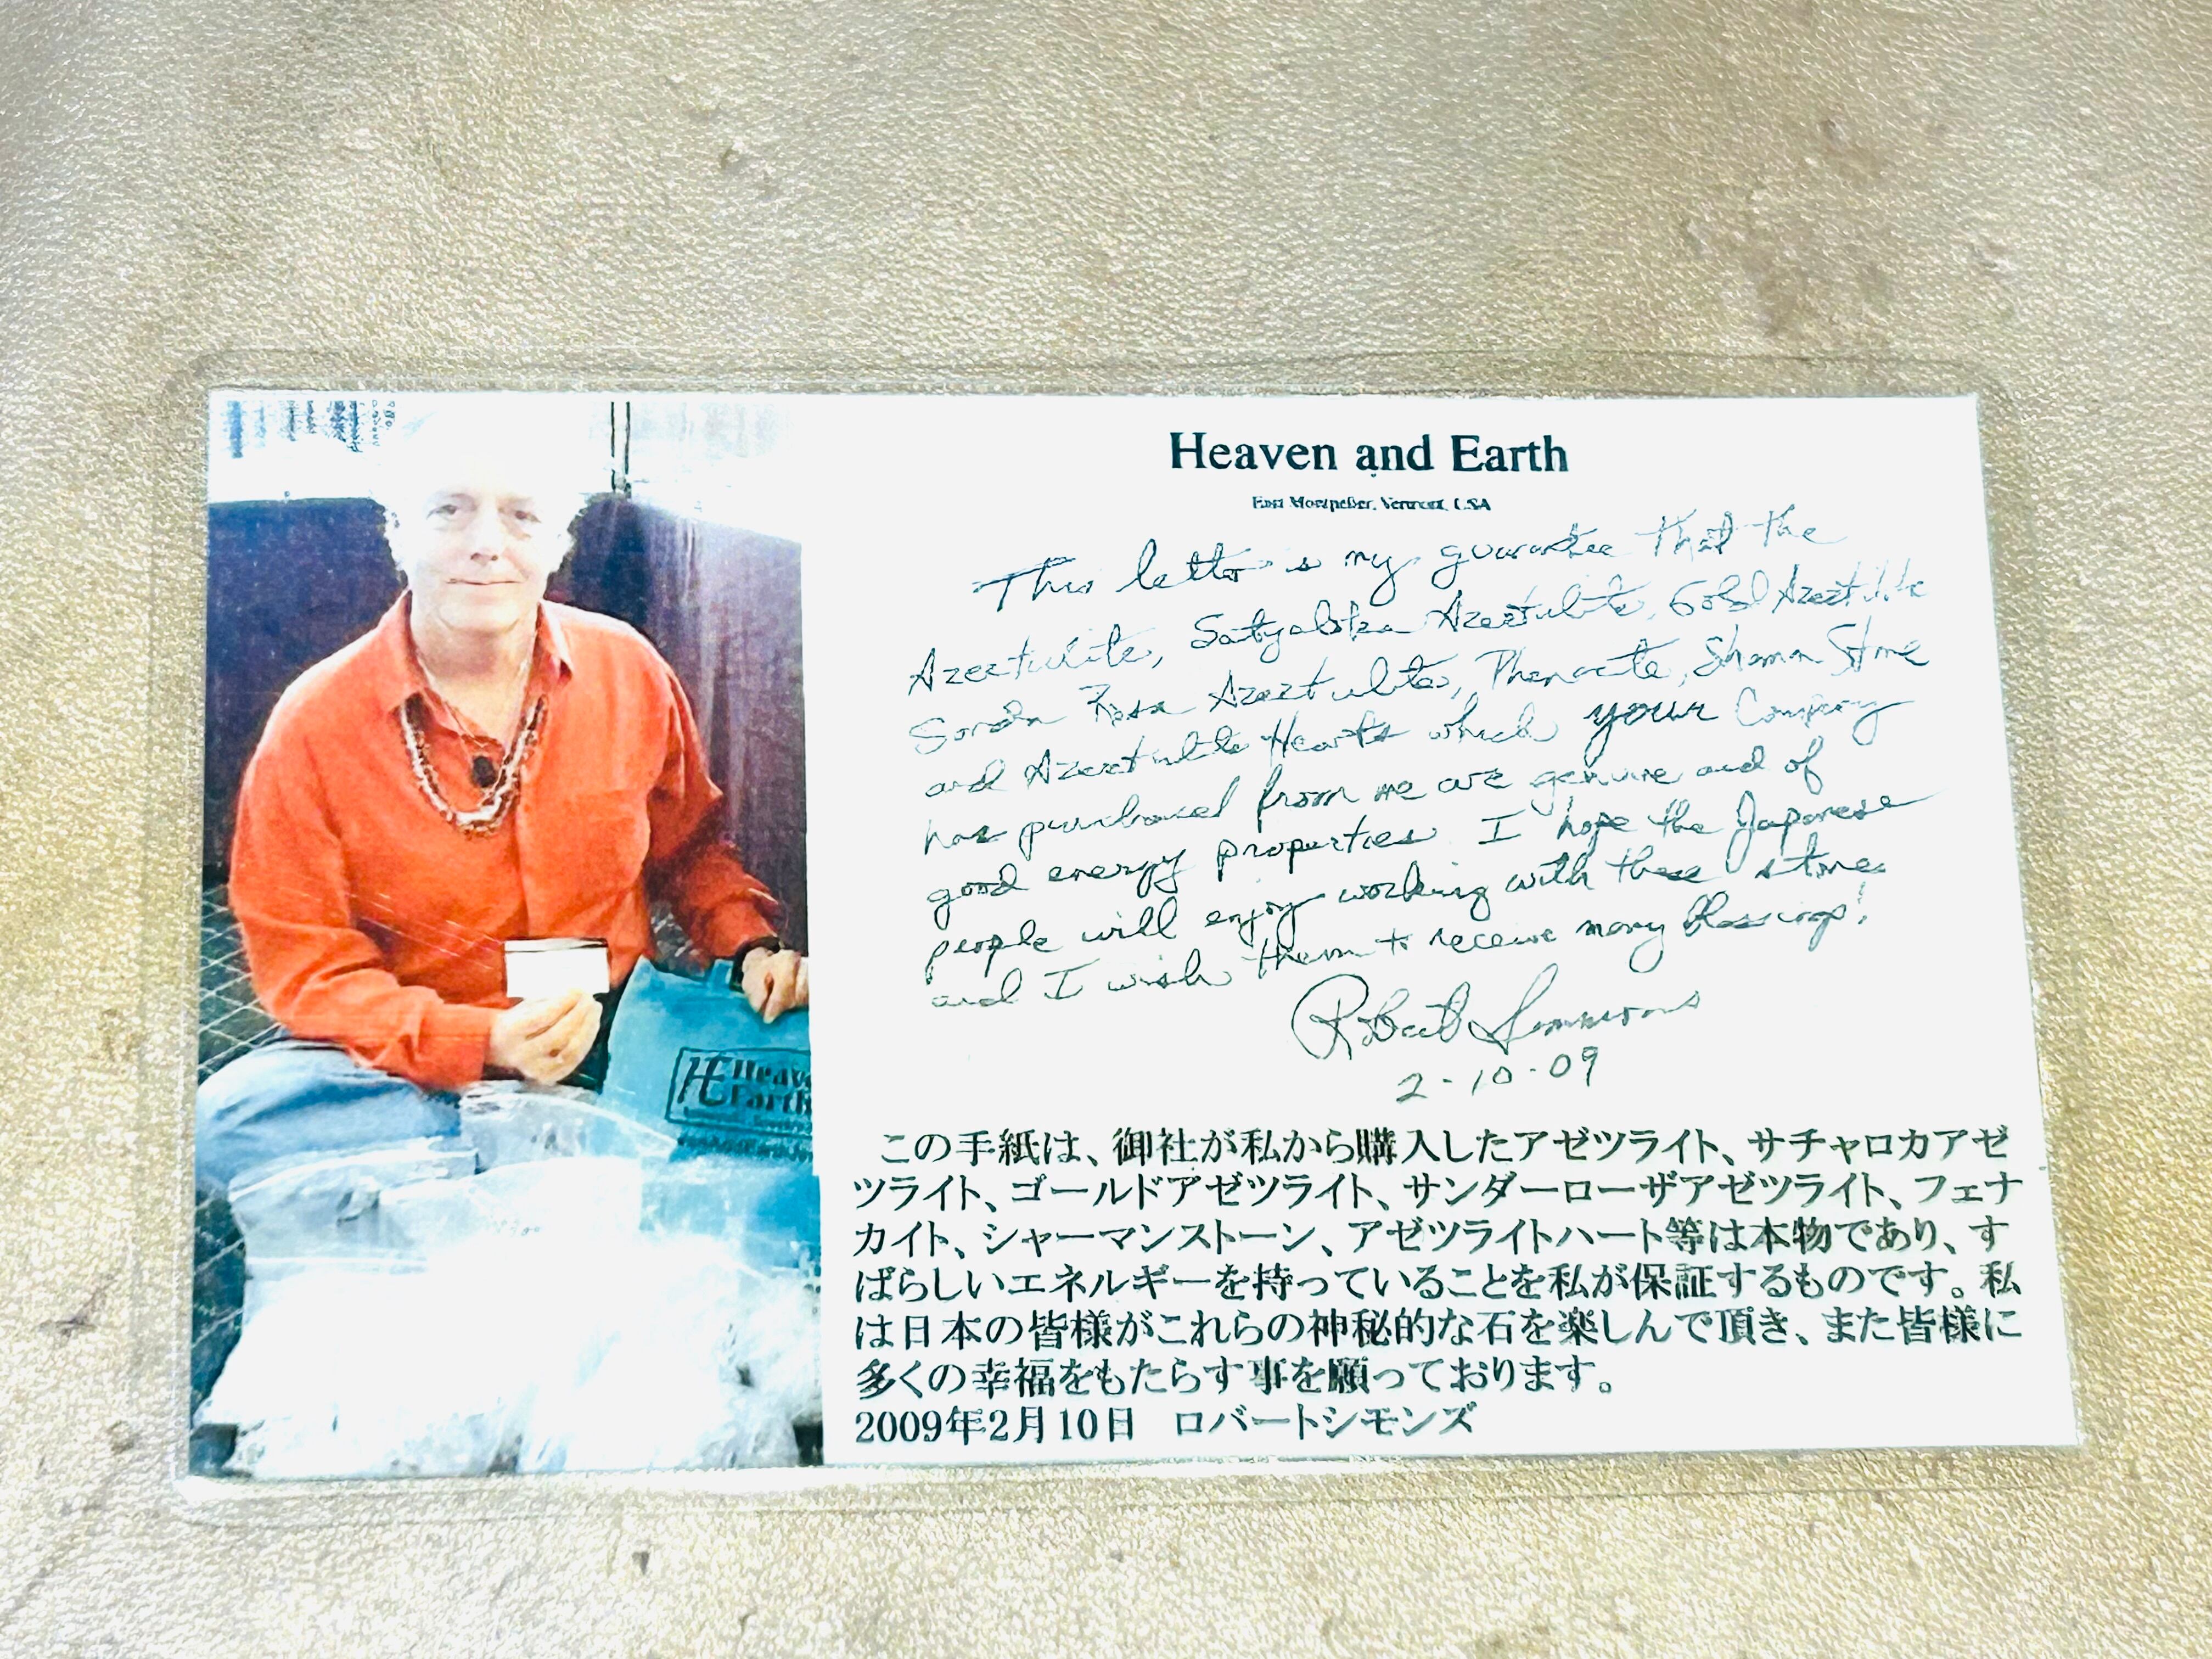 Heaven and Earth
East Montpelier, Vermont, USA
This letter is my guarantee that the
Azeztulite, Satyaloka Azeztulite, Gold Azeztulite
Sanda Rosa Azeztulite, Phenacite, Shaman Stone
and Azeztulite Hearts which your Company
has purchased from me are genuine and of
good energy properties. I hope the Japanese
people will enjoy working with these stones
and I wish them to receive many blessings!
Robert Simmons
2-10-09
HE Heav
Earth
この手紙は、御社が私から購入したアゼツライト、サチャロカアゼ
ツライト、ゴールドアゼツライト、サンダーローザアゼツライト、フェナ
カイト、シャーマンストーン、アゼツライトハート等は本物であり、す
ばらしいエネルギーを持っていることを私が保証するものです。私
は日本の皆様がこれらの神秘的な石を楽しんで頂き、また皆様に
多くの幸福をもたらす事を願っております。
2009年2月10日 ロバートシモンズ